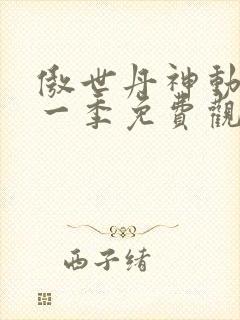 傲世丹神動
一季免費觀
西子緒